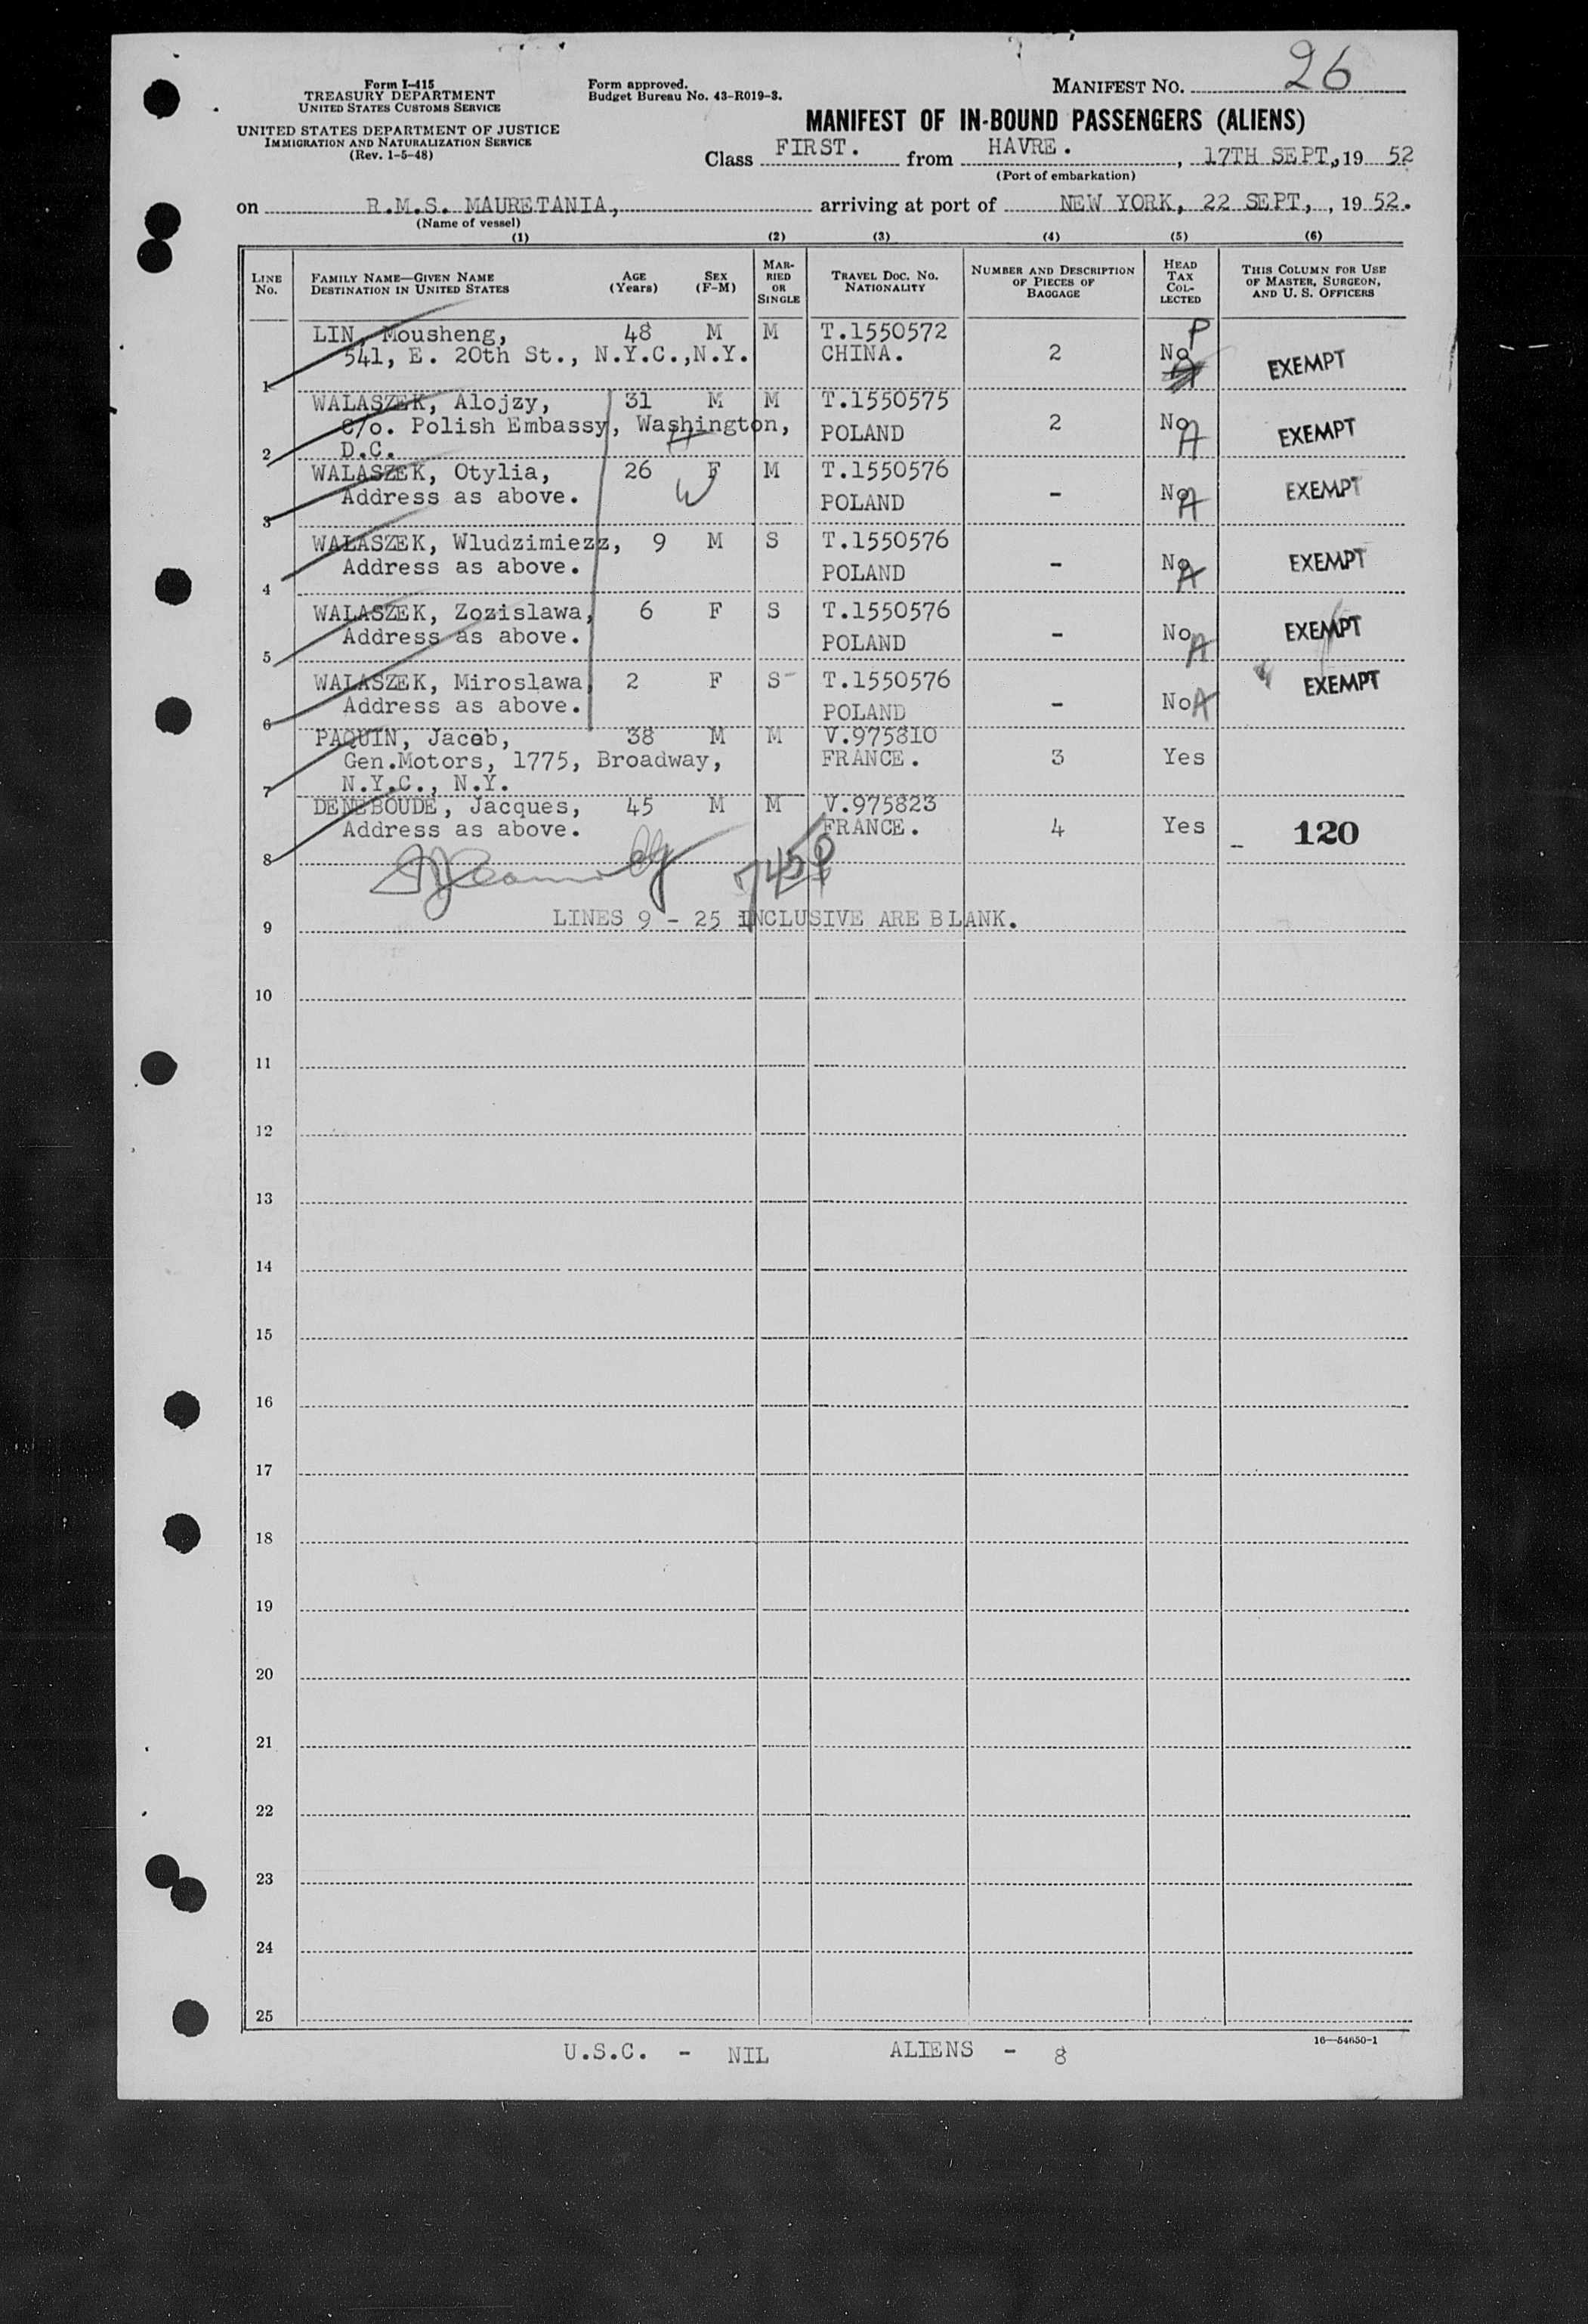 Form I-415
TREASURY DEPARTMENT
UNITED STATES CUSTOMS SERVICE
UNITED STATES DEPARTMENT OF JUSTICE
IMMIGRATION AND NATURALIZATION SERVICE
(Rev. 1-5-48)
Form approved.
Budget Bureau No. 43-R019-3.
MANIFEST NO. 26
MANIFEST OF IN-BOUND PASSENGERS (ALIENS)
Class FIRST. from HAVRE. , 17TH SEPT, 19 52
(Port of embarkation)
on R.M.S. MAURETANIA, arriving at port of NEW YORK, 22 SEPT, , 19 52.
(Name of vessel)
(1) (2) (3) (4) (5) (6)
LINE No. FAMILY NAME—GIVEN NAME DESTINATION IN UNITED STATES AGE (Years) SEX (F-M) MARRIED OR SINGLE TRAVEL DOC. NO. NATIONALITY NUMBER AND DESCRIPTION OF PIECES OF BAGGAGE HEAD TAX COLLECTED THIS COLUMN FOR USE OF MASTER, SURGEON, AND U. S. OFFICERS
LIN, Mousheng, 48 M M T.1550572 P
541, E. 20th St., N.Y.C.,N.Y. CHINA. 2 No EXEMPT
1
WALASZEK, Alojzy, 31 M M T.1550575
C/o. Polish Embassy, Washington, POLAND 2 No A EXEMPT
2 D.C.
WALASZEK, Otylia, 26 F M T.1550576
Address as above. W POLAND - No A EXEMPT
3
WALASZEK, Wludzimiezz, 9 M S T.1550576
Address as above. POLAND - No A EXEMPT
4
WALASZEK, Zozislawa, 6 F S T.1550576
Address as above. POLAND - No A EXEMPT
5
WALASZEK, Miroslawa, 2 F S T.1550576
Address as above. POLAND - No A EXEMPT
6
PAQUIN, Jacob, 38 M M V.975810
Gen.Motors, 1775, Broadway, FRANCE. 3 Yes
7 N.Y.C., N.Y.
DENEBOUDE, Jacques, 45 M M V.975823
Address as above. FRANCE. 4 Yes 120
8
LINES 9 - 25 INCLUSIVE ARE BLANK.
9
10
11
12
13
14
15
16
17
18
19
20
21
22
23
24
25
16—54650-1
U.S.C. - NIL ALIENS - 8